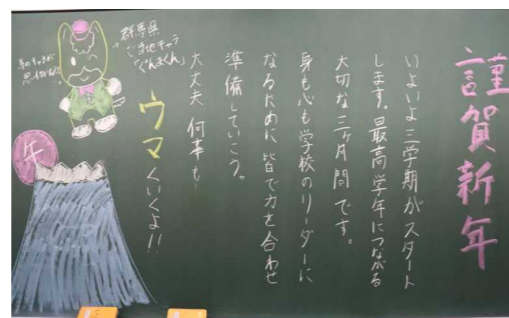 謹賀新年
いよいよ三学期がスタート
します。最高学年につながる
大切な三ヶ月間です。
身も心も学校のリーダーに
なるために 皆で力を合わせ
準備していこう。
大丈夫 何事も
ウマくいくよ!!
群馬県
ご当地キャラ
「ぐんまくん」
午